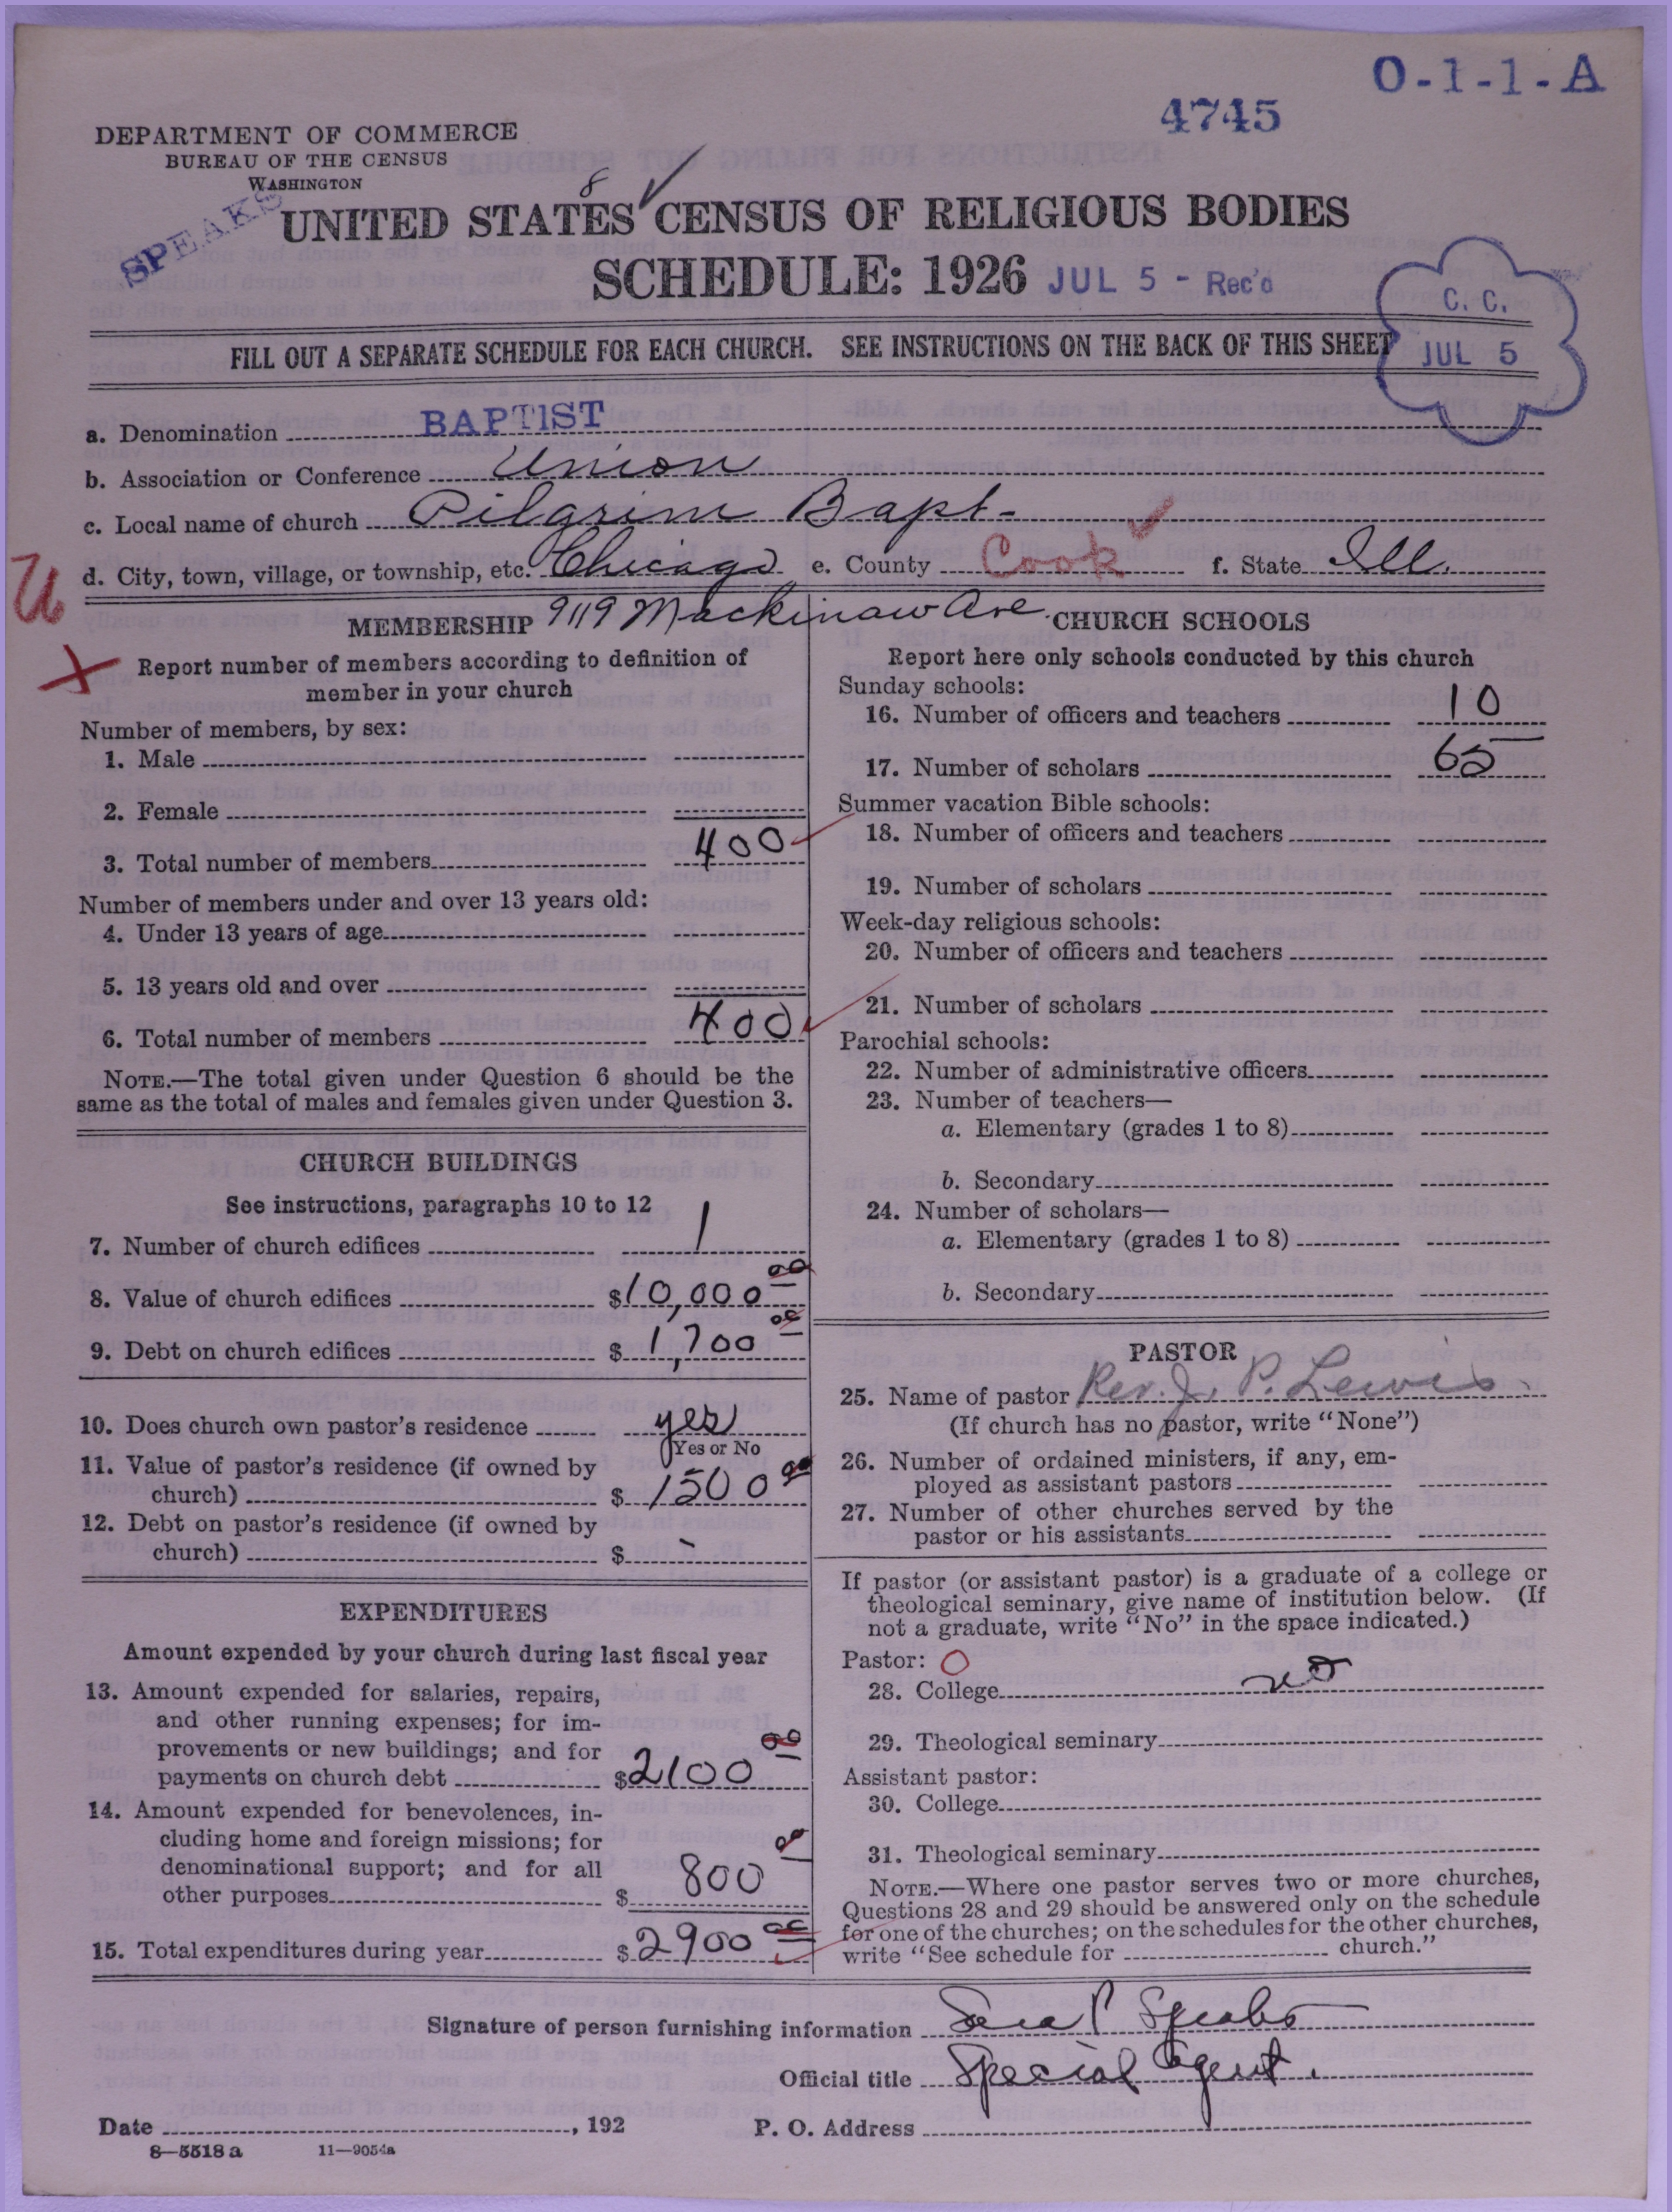 O-1-1-A
4745
DEPARTMENT OF COMMERCE
BUREAU OF THE CENSUS
WASHINGTON
SPEAKS
8
UNITED STATES CENSUS OF RELIGIOUS BODIES
SCHEDULE: 1926 JUL 5 - Rec'd
C. C.
JUL 5
FILL OUT A SEPARATE SCHEDULE FOR EACH CHURCH. SEE INSTRUCTIONS ON THE BACK OF THIS SHEET
a. Denomination BAPTIST
b. Association or Conference Union
c. Local name of church Pilgrim Bapt-
d. City, town, village, or township, etc. Chicago e. County Cook f. State Ill.
U
9119 Mackinaw Ave.
MEMBERSHIP
X
Report number of members according to definition of
member in your church
Number of members, by sex:
1. Male
2. Female
3. Total number of members 400
Number of members under and over 13 years old:
4. Under 13 years of age
5. 13 years old and over
6. Total number of members 400
NOTE.—The total given under Question 6 should be the
same as the total of males and females given under Question 3.
CHURCH BUILDINGS
See instructions, paragraphs 10 to 12
7. Number of church edifices 1
8. Value of church edifices $10,000 00
9. Debt on church edifices $1,700 00
10. Does church own pastor's residence yes
Yes or No
11. Value of pastor's residence (if owned by
church) $1500 00
12. Debt on pastor's residence (if owned by
church) $ -
EXPENDITURES
Amount expended by your church during last fiscal year
13. Amount expended for salaries, repairs,
and other running expenses; for im-
provements or new buildings; and for
payments on church debt $2100 00
14. Amount expended for benevolences, in-
cluding home and foreign missions; for
denominational support; and for all
other purposes $ 800 00
15. Total expenditures during year $2900 00
CHURCH SCHOOLS
Report here only schools conducted by this church
Sunday schools:
16. Number of officers and teachers 10
17. Number of scholars 65
Summer vacation Bible schools:
18. Number of officers and teachers
19. Number of scholars
Week-day religious schools:
20. Number of officers and teachers
21. Number of scholars
Parochial schools:
22. Number of administrative officers
23. Number of teachers—
a. Elementary (grades 1 to 8)
b. Secondary
24. Number of scholars—
a. Elementary (grades 1 to 8)
b. Secondary
PASTOR
25. Name of pastor Rev. J. P. Lewis
(If church has no pastor, write "None")
26. Number of ordained ministers, if any, em-
ployed as assistant pastors
27. Number of other churches served by the
pastor or his assistants
If pastor (or assistant pastor) is a graduate of a college or
theological seminary, give name of institution below. (If
not a graduate, write "No" in the space indicated.)
Pastor: O
28. College no
29. Theological seminary
Assistant pastor:
30. College
31. Theological seminary
NOTE.—Where one pastor serves two or more churches,
Questions 28 and 29 should be answered only on the schedule
for one of the churches; on the schedules for the other churches,
write "See schedule for church."
Signature of person furnishing information Speaks
Official title Special Agent.
Date , 192 P. O. Address
8—5518 a 11—9054a